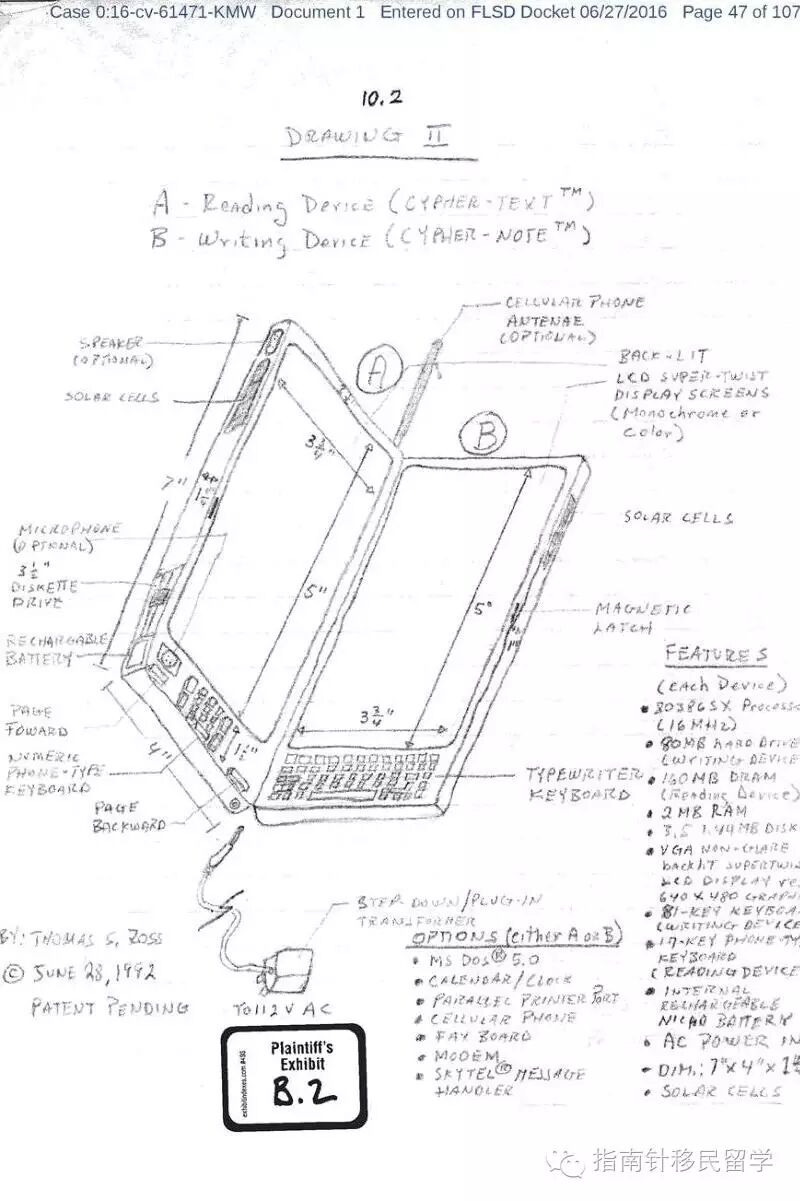 Case 0:16-cv-61471-KMW Document 1 Entered on FLSD Docket 06/27/2016 Page 47 of 107
10.2
DRAWING II
A - Reading Device (CYPHER-TEXT™)
B - Writing Device (CYPHER-NOTE™)
CELLULAR PHONE
ANTENAE
(OPTIONAL)
SPEAKER
(OPTIONAL)
SOLAR CELLS
A
BACK-LIT
LCD SUPER-TWIST
DISPLAY SCREENS
(Monochrome or
Color)
B
3 3/4"
7"
SOLAR CELLS
MICROPHONE
(OPTIONAL)
3 1/2"
DISKETTE
DRIVE
5"
5"
MAGNETIC
LATCH
RECHARGABLE
BATTERY
PAGE
FOWARD
NUMERIC
PHONE-TYPE
KEYBOARD
4"
PAGE
BACKWARD
3 3/4"
TYPEWRITER
KEYBOARD
FEATURES
(each Device)
• 80386SX Processo
(16MHz)
• 80MB HARD DRIVE
(WRITING DEVICE
DRAM
(Reading Device)
• 2 MB RAM
• 3.5 1.44MB DISK
• VGA NON-GLARE
backlit SUPERTWI
LCD DISPLAY
640 x 480 GRAPH
• 81-KEY KEYBOA
(WRITING DEVICE
• 17-KEY PHONE-TY
KEYBOARD
(READING DEVICE
• INTERNAL
RECHARGEABLE
NICAD BATTERY
• AC POWER IN
• DIM.; 7"x4"x1
• SOLAR CELLS
STEP DOWN/PLUG-IN
TRANSFORMER
TO 112 V AC
OPTIONS (either A or B)
• MS DOS® 5.0
• CALENDAR/CLOCK
• PARALLEL PRINTER PORT
• CELLULAR PHONE
• FAX BOARD
• MODEM
• SKYTEL® MESSAGE
HANDLER
BY: THOMAS S. ROSS
© JUNE 28, 1992
PATENT PENDING
Plaintiff's
Exhibit
B.2
指南针移民留学